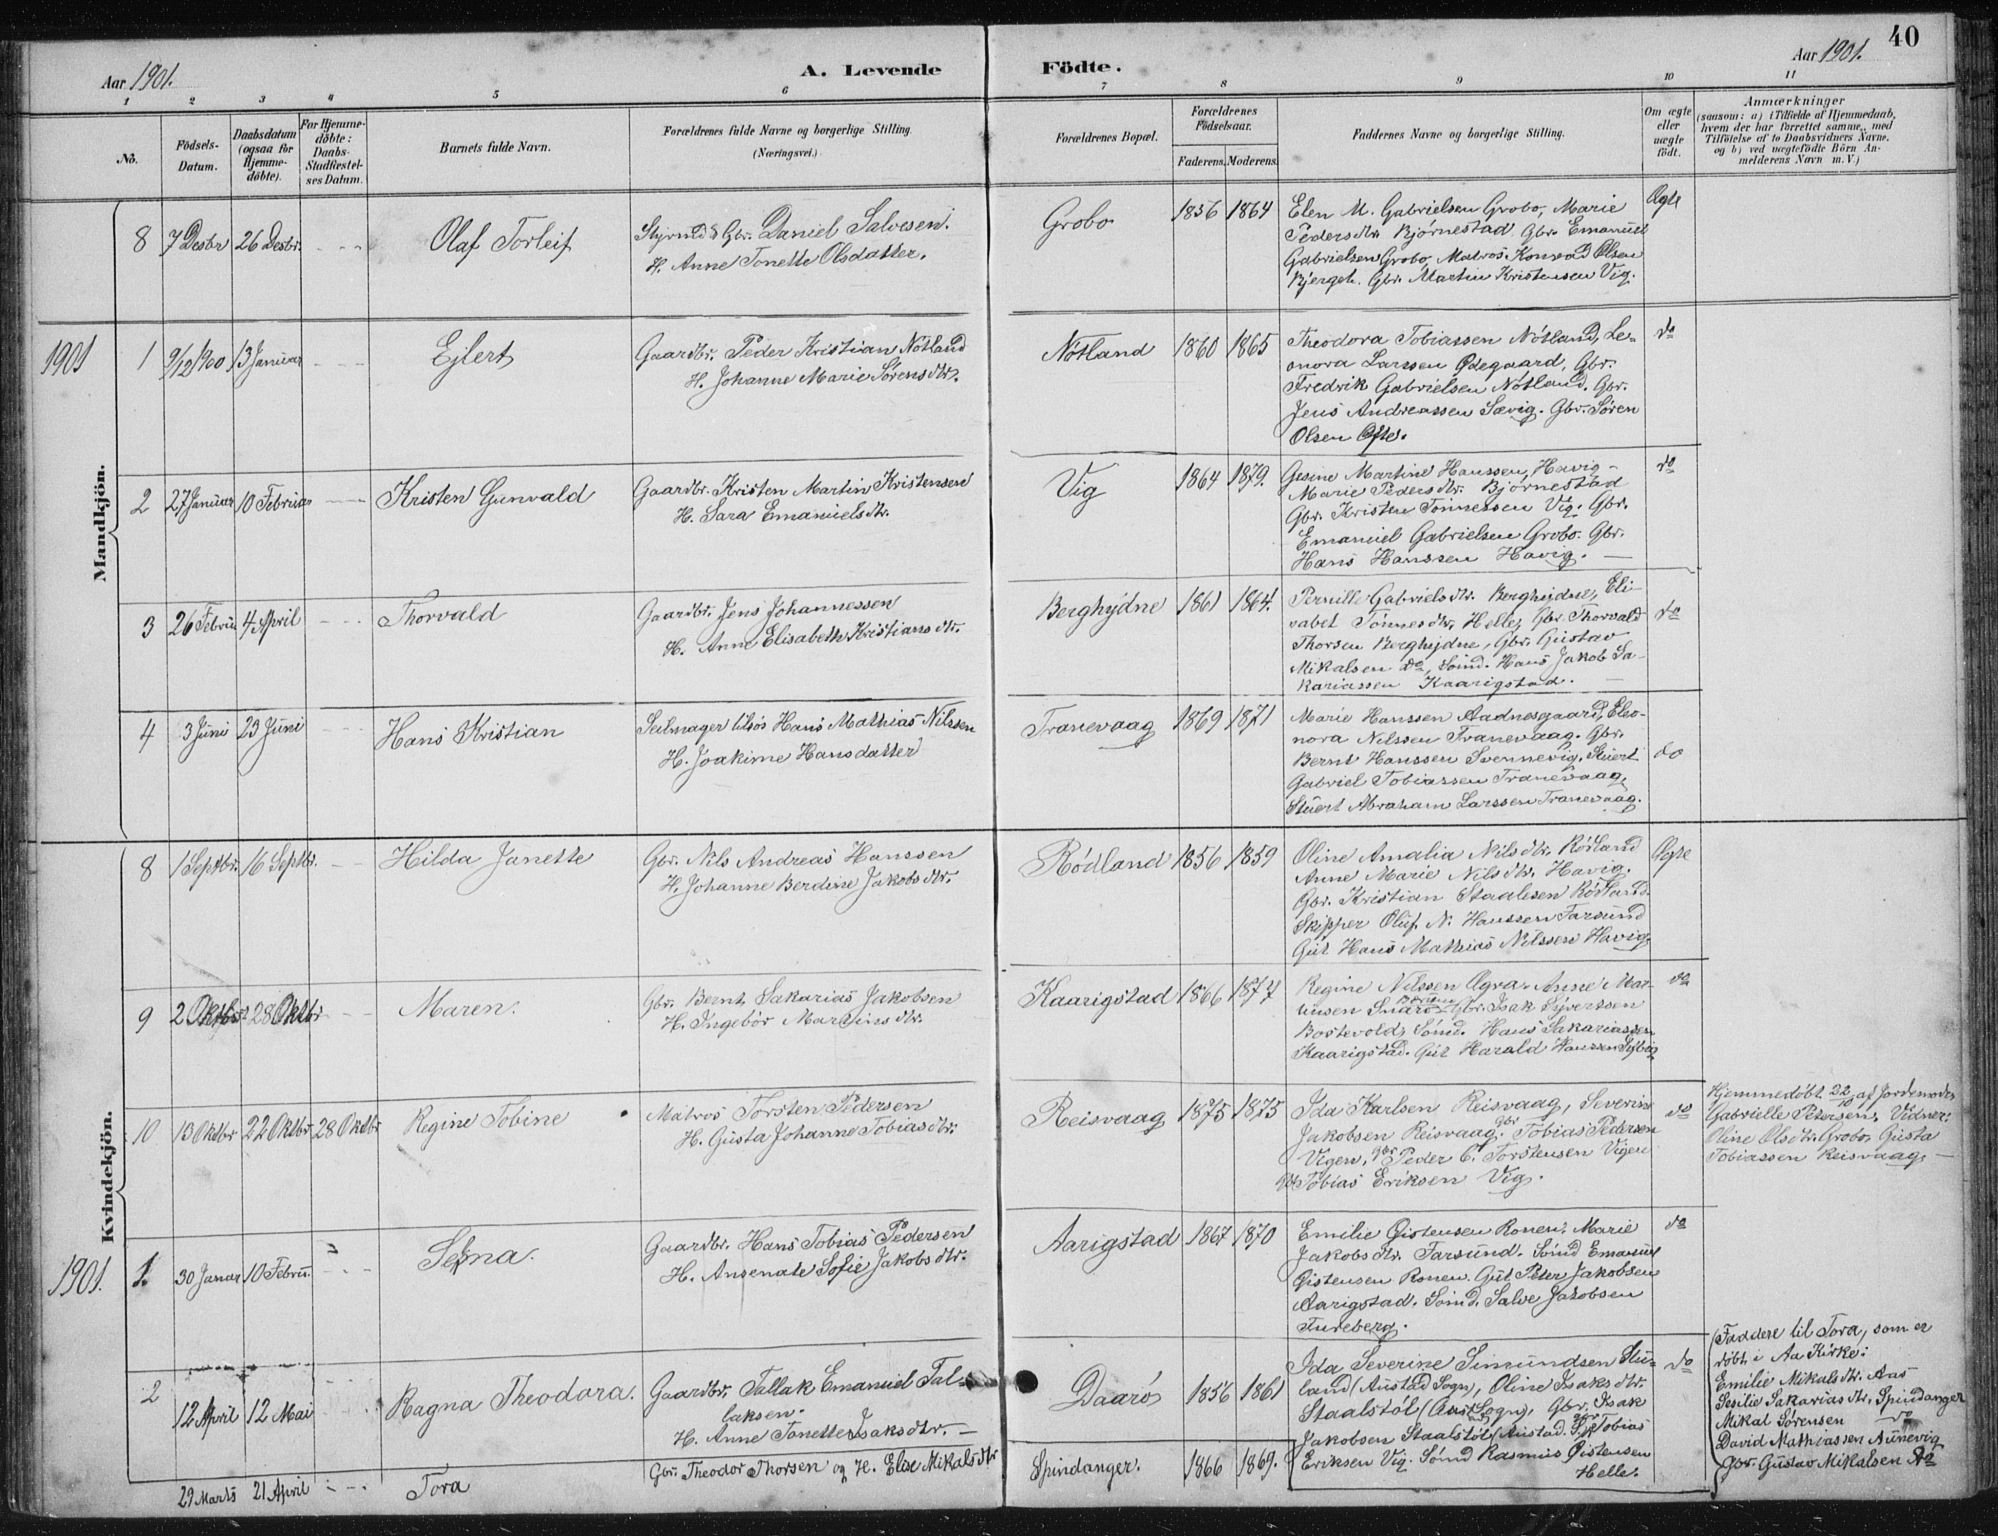 40
Aar 1901.
A. Levende
Födte.
Aar 1901.
1 2 3 4 5 6 7 8 9 10 11
No.
Födsels-
Datum.
Daabsdatum
(ogsaa for
Hjemme-
döbte).
For Hjemme-
döbte:
Daabs-
Stadfæstel-
ses Datum.
Barnets fulde Navn.
Forældrenes fulde Navne og borgerlige Stilling.
(Næringsvei.)
Forældrenes Bopæl.
Forældrenes
Födselsaar.
Faderens. Moderens.
Faddernes Navne og borgerlige Stilling.
Om ægte
eller
uægte
födt.
Anmærkninger
(saasom: a) i Tilfælde af Hjemmedaab,
hvem der har forrettet samme, med
Tilföielse af to Daabsvidners Navne,
og b) ved uægtefödte Börn An-
melderens Navn m. V.)
Mandkjön.
8 7 Desbr 26 Desbr. Olaf Torleif
Styrmd & Gbr. Daniel Salvesen.
H. Anne Tonette Olsdatter.
Grobo 1856 1864
Elen M. Gabrielsen Grobo, Marie
Pedersdtr. Bjørnestad, Gbr. Emanuel
Gabrielsen Grobo, Matros Konrad Olsen
Bjergeh. Gbr. Martin Kristensen Vig.
Ægte
1901
1 9/12 1900 13 Januar Ejlert
Gaardbr. Peder Kristian Nótland
H. Johanne Marie Sörensdtr.
Nótland 1860 1865
Theodora Tobiassen Nótland, Le-
onora Larssen Ødegaard, Gbr.
Fredrik Gabrielsen Nótland. Gbr.
Jens Andreassen Sævig. Gbr. Søren
Olsen Ofte.
do
2 27 Januar 10 Februar Kristen Gunvald
Gaardbr. Kristen Martin Kristensen
H. Sara Emanuelsdtr.
Vig 1864 1879.
Gesine Martine Hanssen, Havig -
Marie Pedersdtr. Bjørnestad
Gbr. Kristen Tönnessen Vig. Gbr.
Emanuel Gabrielsen Grobo. Gbr.
Hans Hanssen Havig.
do
3 26 Februar 4 April Thorvald
Gaardbr. Jens Johannessen
H. Anne Elisabeth Kristiansdtr.
Berghydne 1861 1864.
Pernille Gabrielsdtr. Berghydne, Eli-
sabet Tönnesdtr. Helle, Gbr. Thorvald
Thorsen Berghydne, Gbr. Gustav
Mikalsen do, Sömd. Hans Jakob Sa-
kariassen Kaarigstad.
do
4 3 Juni 23 Juni Hans Kristian
Seilmager tilsøs Hans Mathias Nilssen
H. Joakime Hansdatter
Tranevaag 1869 1871
Marie Hanssen Aadnesgaard, Eleo-
nora Nilssen Tranevaag. Gbr.
Bernt Hanssen Svennevig, Stuert
Gabriel Tobiassen Tranevaag,
Stuert Abraham Larssen Tranevaag.
do
Kvindekjön.
8 1 Septbr. 16 Septbr. Hilda Janette
Gbr. Nils Andreas Hanssen
H. Johanne Berdine Jakobsdtr.
Rödland 1856 1859
Oline Amalia Nilsdtr. Rödland
Anne Marie Nilsdtr. Havig.
Gbr. Kristian Staalesen Rödland.
Skipper Oluf N. Hanssen Farsund
Gut Hans Mathias Nilssen Havig.
Ægte
9 2 Oktbr 28 Oktbr Maren.
Gbr. Bernt Sakarias Jakobsen
H. Ingebör Martinsdtr.
Kaarigstad 1866 1877
Regine Nilssen Ogra, Anne Mar-
tinsen Gbr. Isak Syverssen
Bostevold, Sömd. Hans Sakariassen
Kaarigstad. Gut Harald Hanssen
do
10 13 Oktbr 22 Oktbr 28 Oktbr Regine Tobine
Matros Torsten Pedersen
H. Gusta Johanne Tobiasdtr.
Reisvaag 1875 1875
Ida Karlsen Reisvaag, Severin
Jakobsen Reisvaag. Gbr Tobias Pedersen
Vigen, Gbr Peder C. Torstensen Vigen
Gbr Tobias Eriksen Vig.
do
Hjemmedöbt 22/10 af Jordemoder
Gabrielle Petersen, Vidner:
Oline Olsdtr. Grobo, Gusta
Tobiassen Reisvaag.
1901.
1. 30 Januar 10 Februar
Gaardbr. Hans Tobias Pedersen
H. Ansenate Sofie Jakobsdtr.
Aarigstad 1867 1870
Emilie Gistensen Ronen. Marie
Jakobsdtr. Farsund. Sömd Emanuel
Gistensen Ronen. Gut Peter Jakobsen
Aarigstad. Sömd. Salve Jakobsen
Tureberg.
do
2 12 April 12 Mai Ragna Theodora.
Gaardbr. Tallak Emanuel Tal-
laksen.
H. Anne Tonette Isaksdtr.
Daarö 1856 1861
Ida Severine Simundsen Stu-
land (Austad Sogn), Oline Isaksdtr.
Staalstöl (Austad Sogn), Gbr. Isak
Jakobsen Staalstöl (Austad. S.) Gbr Tobias
Eriksen Vig. Sömd Rasmus Gistensen
Helle.
do
29 Marts 21 April Tora
Gbr. Theodor Thorsen og H. Elise Mikalsdtr
Spindanger. 1866 1869.
Faddere til Tora, som er
döbt i Aa Kirke:
Emilie Mikalsdtr. Aas
Sesilie Sakariasdtr. Spindanger
Mikal Sörensen do
David Mathiassen Aunevig
Gbr. Gustav Mikalsen